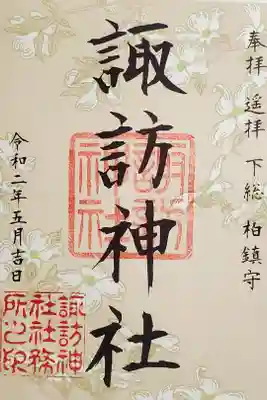 奉拝 遥拝 下総 柏鎮守
諏訪神社
令和二年五月吉日
諏訪神社
諏訪神
社社務
所之印